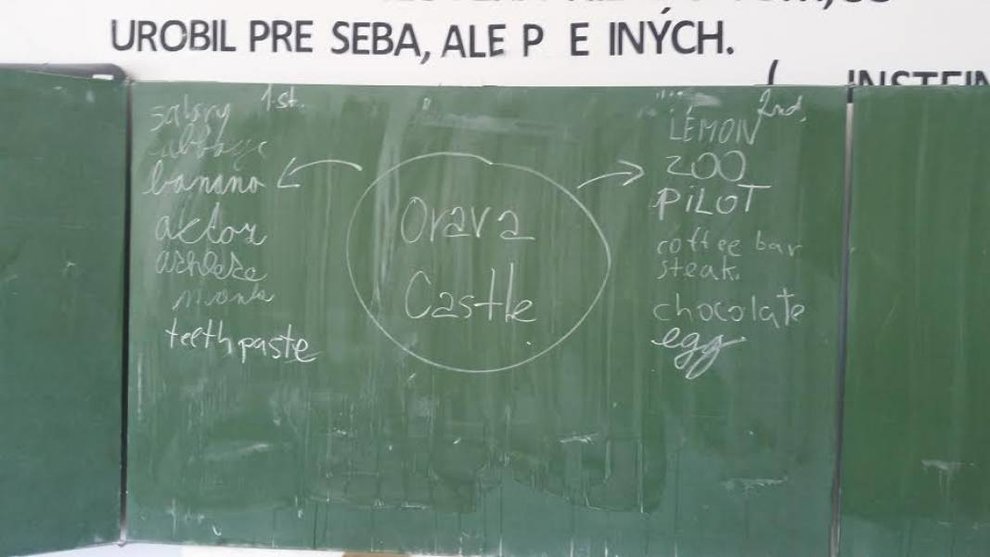 UROBIL PRE SEBA, ALE P E INÝCH.
1st.
salary
cabbage
banano
aktor
monk
teethpaste
Orava
Castle
2nd.
LEMON
ZOO
PiLOT
coffee bar
steak.
chocolate
egg